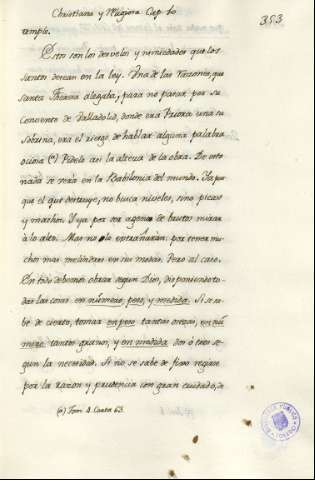 Christiana y Religiosa Cap. 10
353
temple.
Estos son los desvelos y nimiedades que los
santos desean en la ley. Una de las razones, que
santa Theresa alegaba, para no parar por su
Convento de Valladolid, donde era Priora una su
sobrina, era el riesgo de hablar alguna palabra
ociosa (a) Pidelo asi la alteza de la obra. De esto
nada se verá en la Babilonia del mundo. Ya por
que el que destruye, no busca niveles, sino picas
y machos. Y ya por ser ageno de brutos mirar
à lo alto. Mas no lo extrañarán por tener mu-
chos mas melindres en sus modas. Pero al caso.
En todo debemos obrar segun Dios, disponiendo to-
das las cosas en número, peso, y medida. Si se sa-
be de cierto, tomar en peso tantas onzas, en nú-
mero tantos granos, y en medida dos ó tres se-
gun la necesidad. Si no se sabe de fixo regirse
por la razon y prudencia con gran cuidado, de
(a) Tom. 4. Carta 63.
BIBLIOTECA PUBLICA